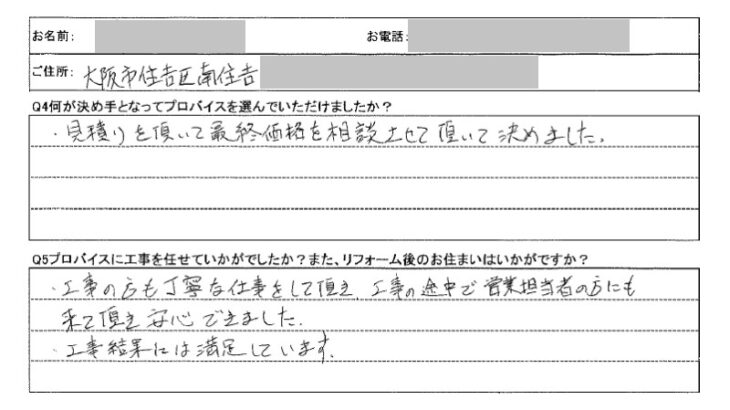 お名前:
お電話:
ご住所: 大阪市住吉区南住吉
Q4何が決め手となってプロバイスを選んでいただけましたか？
・見積りを頂いて最終価格を相談させて頂いて決めました。
Q5プロバイスに工事を任せていかがでしたか？また、リフォーム後のお住まいはいかがですか？
・工事の方も丁寧な仕事をして頂き、工事の途中で営業担当者の方にも
来て頂き安心できました。
・工事結果には満足しています。